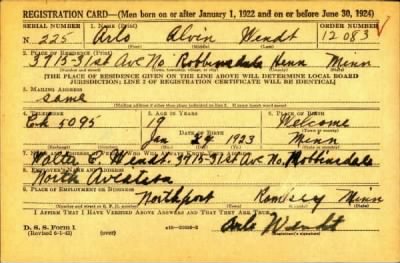 REGISTRATION CARD—(Men born on or after January 1, 1922 and on or before June 30, 1924)
SERIAL NUMBER 1. NAME (Print) ORDER NUMBER
N 225 Arlo Alvin Wendt 12083
(First) (Middle) (Last)
2. PLACE OF RESIDENCE (Print)
3915-31st Ave No Robbinsdale Henn Minn
[THE PLACE OF RESIDENCE GIVEN ON THE LINE ABOVE WILL DETERMINE LOCAL BOARD
JURISDICTION; LINE 2 OF REGISTRATION CERTIFICATE WILL BE IDENTICAL]
3. MAILING ADDRESS
same
4. TELEPHONE 5. AGE IN YEARS 6. PLACE OF BIRTH
5095 19 Welcome
DATE OF BIRTH
Jan 1923 Minn
7.
Walter E. Wendt 3915-31st Ave No. Robbinsdale
8. EMPLOYER'S NAME AND ADDRESS
North Aviation
9. PLACE OF EMPLOYMENT OR BUSINESS
Northport Ramsey Minn
I AFFIRM THAT I HAVE VERIFIED ABOVE ANSWERS AND THAT THEY ARE TRUE.
D. S. S. Form 1
(Revised 6-1-42) (over)
Arlo Wendt
(Registrant's signature)